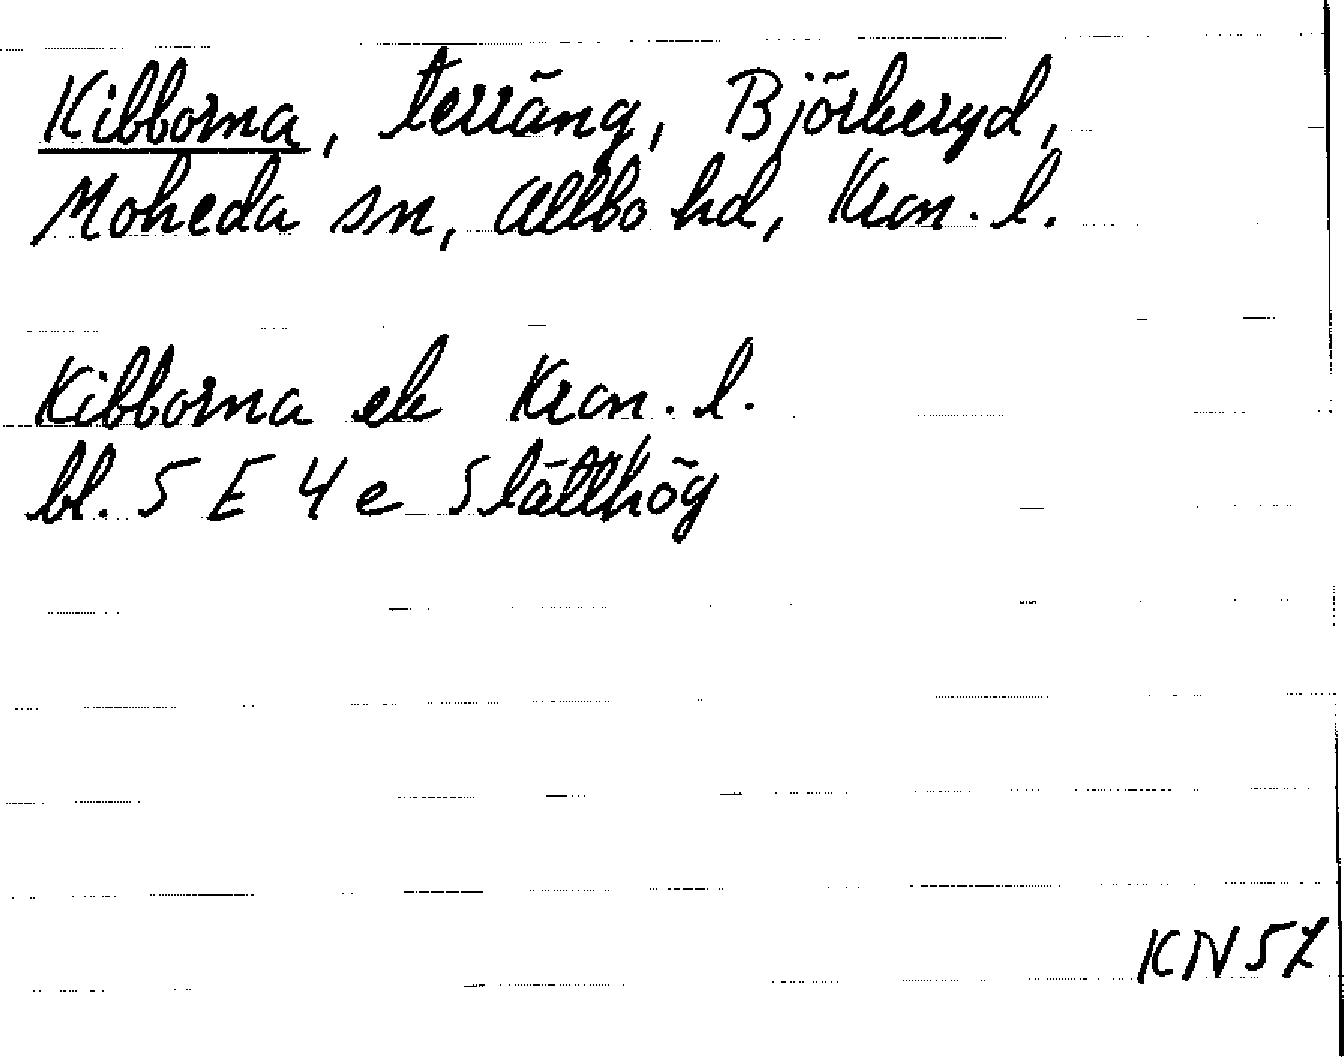 Kibborna, terräng, Björkeryd,
Moheda sn, Allbo hd, Kron. l.
Kibborna ek Kron. l.
bl. 5 E 4 e Slätthög
KN57